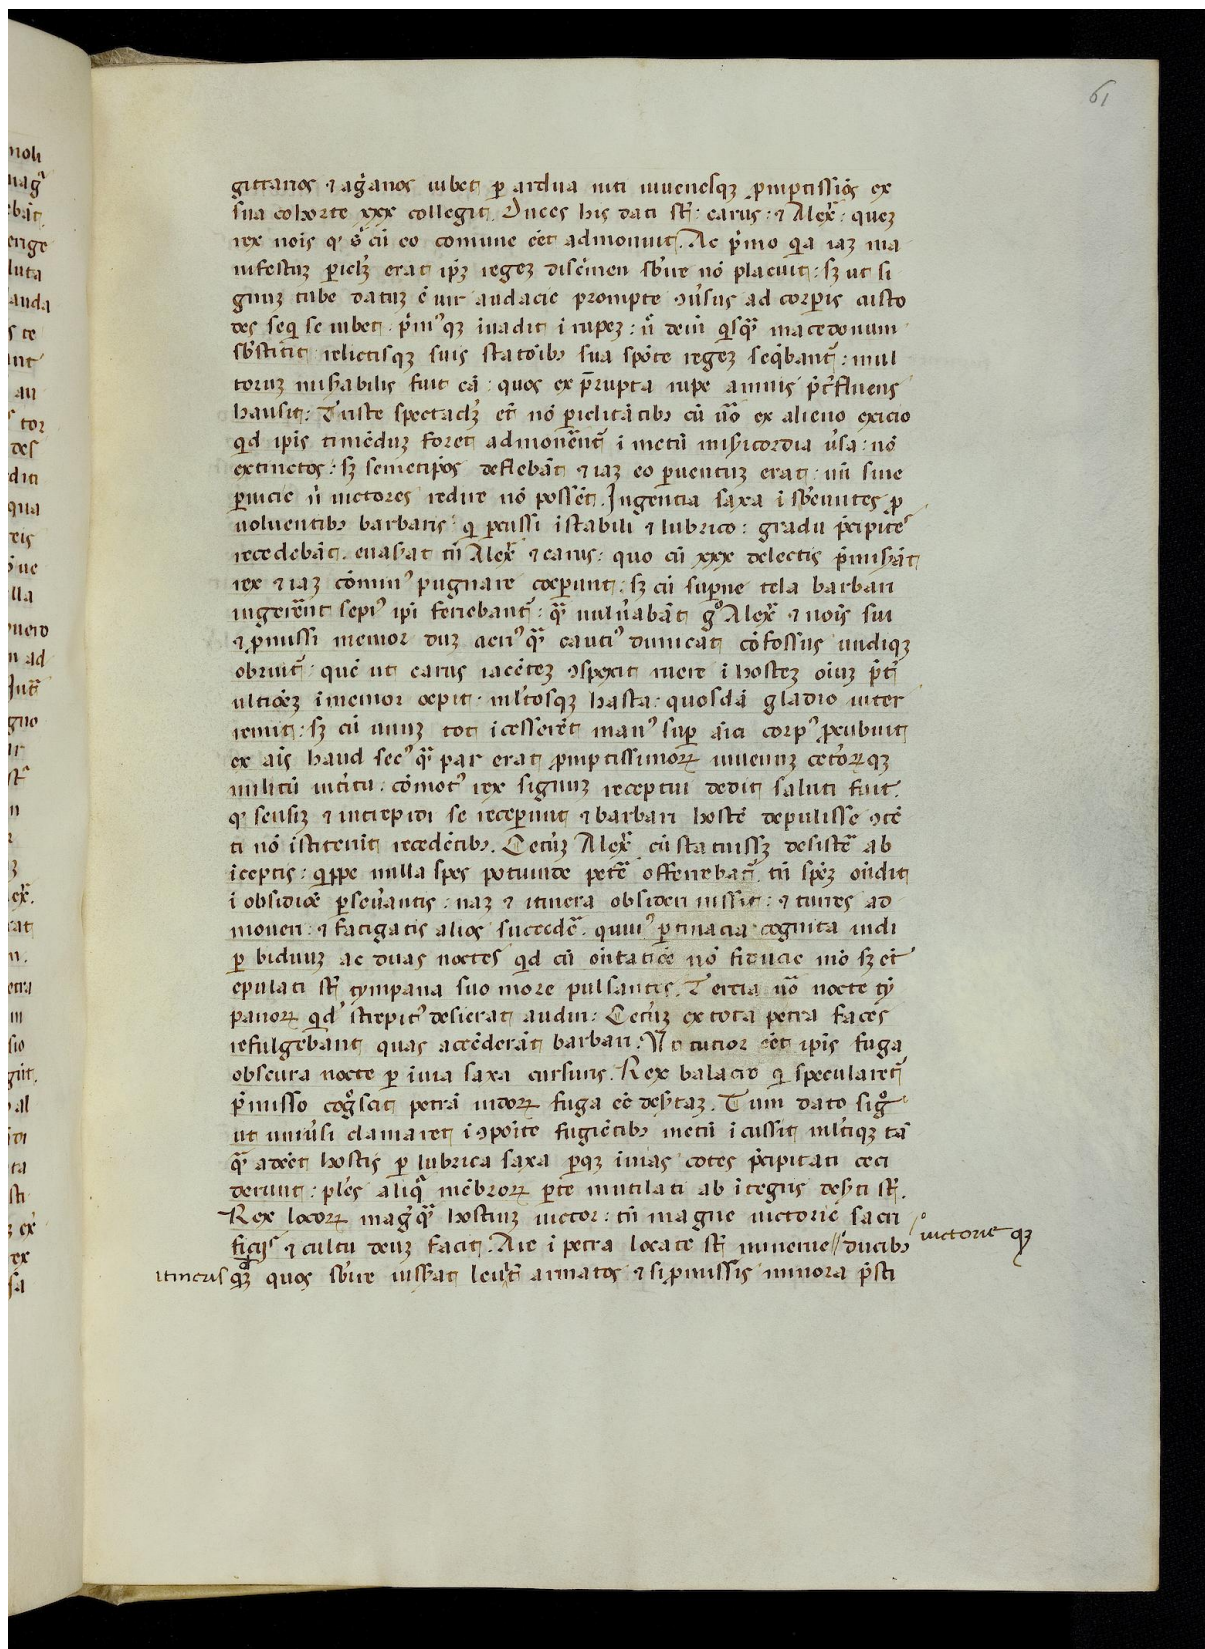 61
gittarios ⁊ ag̃anos iubet ꝑ ardua niti iuuenesqꝫ ꝓmptissĩos ex
sua cohorte xxx collegit. Duces his dati st̃: carus: ⁊ Alex̃: queꝫ
rex nois q̃ s̃ cũ eo comune eẽt admonuit. Ac p̃mo q̃a iaꝫ ma
nifestuꝫ ꝑiclꝫ erat ip̃ꝫ regeꝫ disc̃imen sb̃ire nõ placuit: sꝫ ut si
gnuꝫ tube datuꝫ ẽ uir audacie prompte ꝯuersus ad corꝑis custo
des seq̃ se iubet p̃mꝰqꝫ inuadit i rupeꝫ: n̊ dein̄ q̃sq̃ macedonum
sb̃stitit relictisqꝫ suis statõibꝫ sua spõte regeꝫ seq̃bant̃: mul
toruꝫ mis̃abilis fuit cã: quos ex p̃rupta rupe amnis p̃t̃fluens
hausit: Triste spectaclꝫ et̃ nõ ꝑiclitãtibꝫ cũ ũo ex alieno exicio
qd ipĩs timẽduꝫ foret admonẽnt̃ i metũ mis̃icordia ũsa: nõ
extinctos: sꝫ semetip̃os deflebãt ⁊ iaꝫ eo ꝑuentuꝫ erat: uñ sine
ꝑnicie n̊ victores redire nõ possẽt. Ingencia saxa i sb̃euntes ꝓ
uoluentibꝫ barbaris: q̃ ꝑcussi istabili ⁊ lubrico: gradu p̃cipites
recedebãt. euas̃at tñ Alex̃ ⁊ carus: quo cũ xxx delectis p̃mis̃at
rex ⁊ iaꝫ cõminꝰ pugnare coeꝑunt: sꝫ cũ suꝑne tela barbari
ingerẽnt sepiꝰ ipĩ feriebant̃: q̃ uuln̄abãt g̊ Alex̃ ⁊ nois̃ sui
⁊ ꝓmissi memor duꝫ acriꝰq̃ cautiꝰ dimicat cõfossus undiqꝫ
obruit̃ quẽ ut carus iacẽteꝫ ꝯspexit ruere i hosteꝫ oĩuꝫ p̃t̃
ultiõeꝫ imemor cepit: ml̃tosqꝫ hasta: quosdã gladio inter
remit: sꝫ cũ unuꝫ tot icesserẽt manꝰ suꝑ ãici corpꝰ ꝓcubuit
ex ais̃ haud secꝰ q̃ par erat ꝓmptissimoꝝ iuuenuꝫ cet̃oꝝqꝫ
militũ int̃itu: cõmotꝰ rex signuꝫ receptui dedit saluti fuit:
q̃ sensiꝫ ⁊ intrepidi se receꝑunt ⁊ barbari hostẽ depulisse ꝯtẽ
ti nõ istiterũt recedẽtibꝫ. Cet̃uꝫ Alex̃ cũ statuissꝫ desistẽ ab
iceptis: q̃ppe nulla spes potiunde petẽ offerrebat̃. tñ spẽꝫ oñdit
i obsidiõe ꝑseũantis: naꝫ ⁊ itinera obsideri iussit: ⁊ turres ad
moueri: ⁊ fatigatis alios succedẽ. quiuꝰ ꝑtinacia cognita indi
ꝑ biduuꝫ ac duas noctes qd cũ oñtatiõe nõ fiducie mõ sꝫ et̃
epulati st̃ tympana suo more pulsantes. Tercia ũo nocte tỹ
panoꝝ qd̃ strepitꝰ desierat audiri: Cet̃uꝫ ex tota petra faces
refulgebant quas accẽderãt barbari: Ut tutior eẽt ipĩs fuga
obscura nocte ꝑ inuia saxa cursuris. Rex balacro q̃ specularet̃
p̃misso cog̊scit petrã indoꝝ fuga eẽ des̃taꝫ. Tum dato sig̊
ut uniũsi clamaret i ꝯpoĩte fugiẽtibꝫ metũ icussit ml̃tiqꝫ tã
q̃ adẽet hostis ꝑ lubrica saxa ꝑqꝫ inuias cotes p̃cipitati ceci
derunt: plẽs aliq̃ mẽbroꝝ ꝑte mutilati ab itegris des̃ti st̃.
Rex locoꝝ mag̃q̃ hostiuꝫ victor: tñ magne victorie sacri
ficijs ⁊ cultu deuꝫ facit. Are i petra locate st̃ minerue // ducibꝫ
victorie qꝫ
itineris qꝫ quos sb̃ire iuss̃at leuit̃ armatos ⁊ si ꝓmissis minora p̃sti